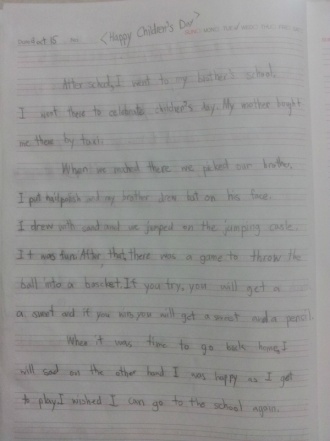 <Happy Children's Day>
After school, I went to my brother's school.
I went there to celebrate children's day. My mother bright
me there by taxi.
When we arrived there we picked our brother.
I put nailpolish and my brother drew bat on his face.
I drew with sand and we jumped on the jumping castle.
It was fun. After that, there was a game to throw the
ball into a basket. If you try, you will get a
a sweet and if you wins, you will get a sweet and a pencil.
When it was time to go back home, I
will sad on the other hand I was happy as I get
to play. I wished I can go to the school again.